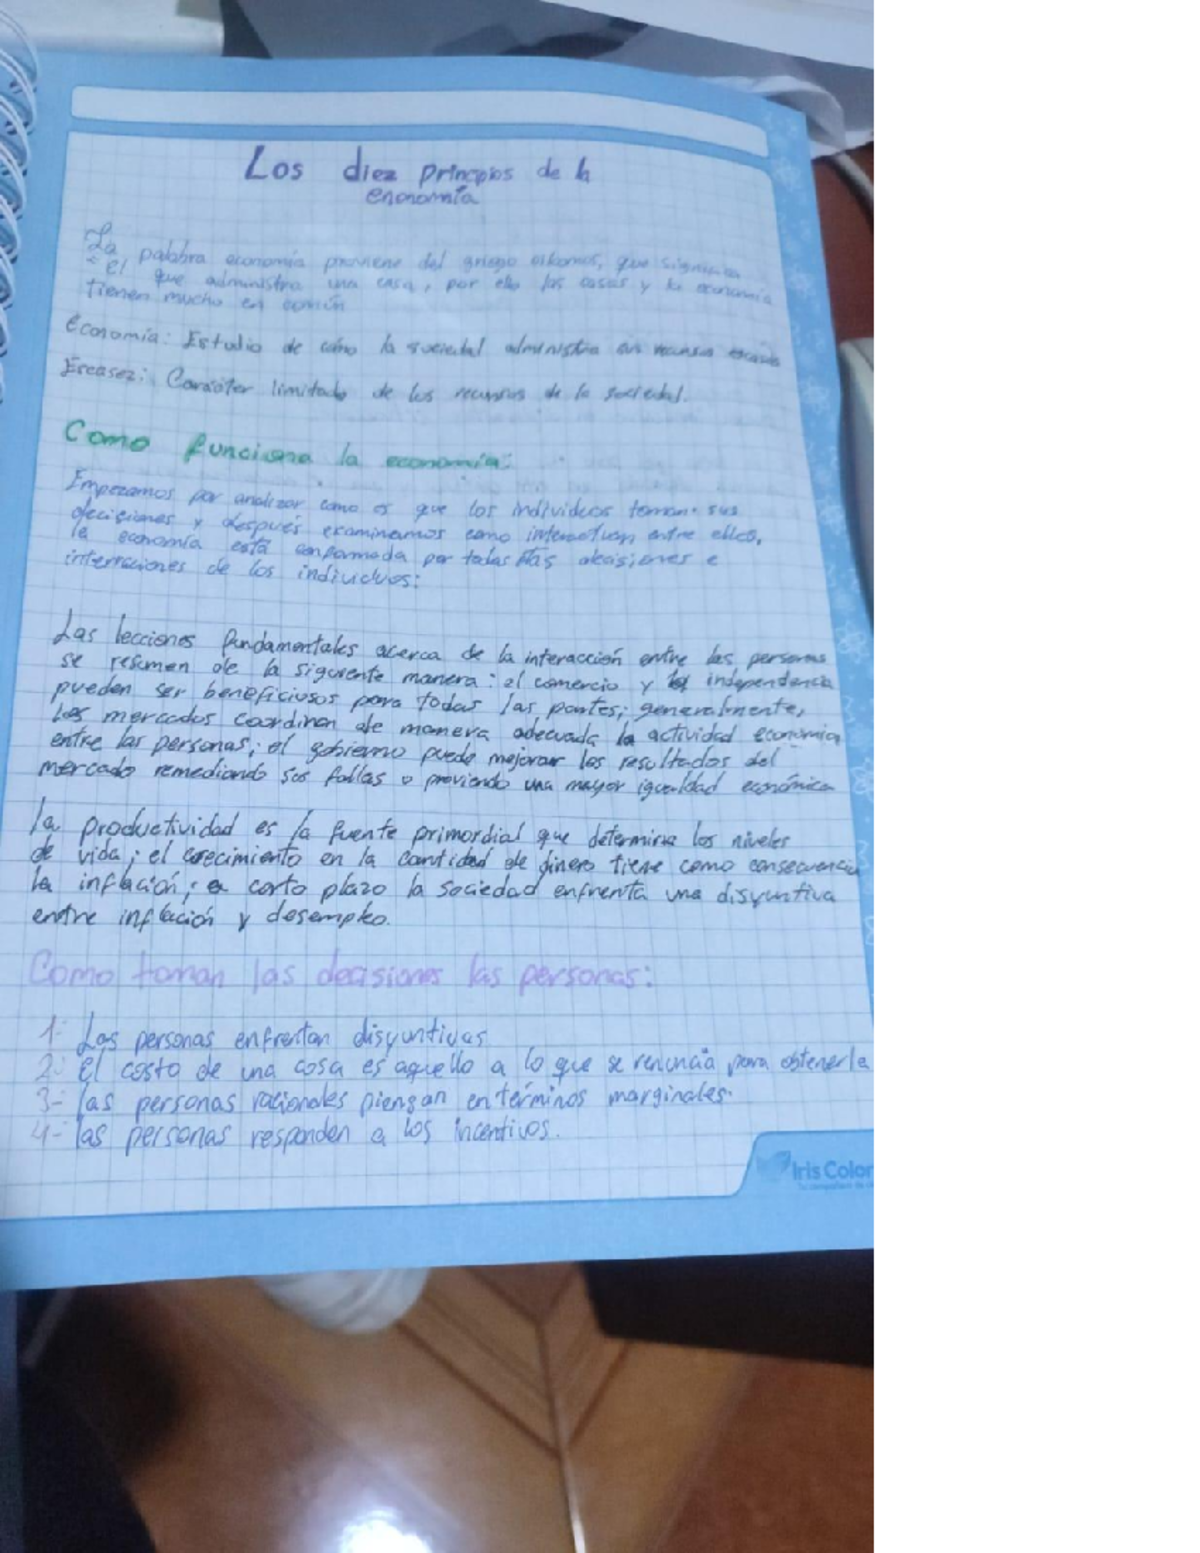 Los diez principios de la
enonomía
La palabra economía proviene del griego oikomos, que significa
"el que administra una casa, por ello las casas y la economía
tienen mucho en común
Economía: Estudio de cómo la sociedad administra sus recursos escasos
Escasez: Carácter limitado de los recursos de la sociedad.
Como funciona la economía:
Empezamos por analizar como es que los individuos toman sus
decisiones y después examinamos como interactuan entre ellos,
la economía está conformada por todas las decisiones e
interacciones de los individuos:
Las lecciones fundamentales acerca de la interacción entre las personas
se resumen de la siguiente manera: el comercio y la independencia
pueden ser beneficiosos para todas las partes; generalmente,
los mercados coordinan de manera adecuada la actividad economica
entre las personas; el gobierno puede mejorar los resultados del
mercado remediando sus fallas o proviendo una mayor igualdad económica
la productividad es la fuente primordial que determina los niveles
de vida; el crecimiento en la cantidad de dinero tiene como consecuencia
la inflación; a corto plazo la sociedad enfrenta una disyuntiva
entre inflación y desempleo.
Como toman las decisiones las personas:
1- Las personas enfrentan disyuntivas
2- El costo de una cosa es aquello a lo que se renuncia para obtenerla
3- las personas racionales piensan en términos marginales.
4- las personas responden a los incentivos.
Iris Color